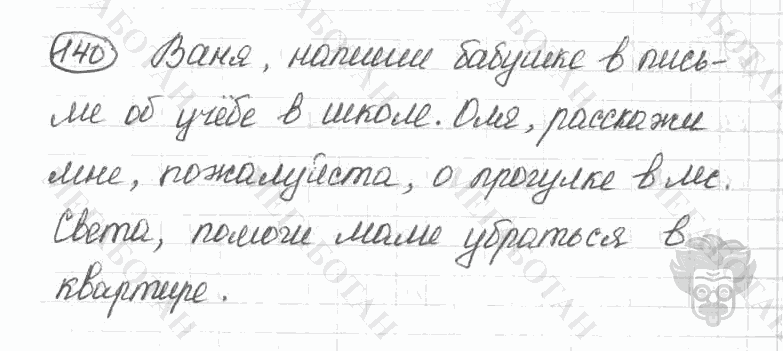 140 Ваня, напиши бабушке в пись-
ме об учёбе в школе. Оля, расскажи
мне, пожалуйста, о прогулке в лес.
Света, помоги маме убраться в
квартире.